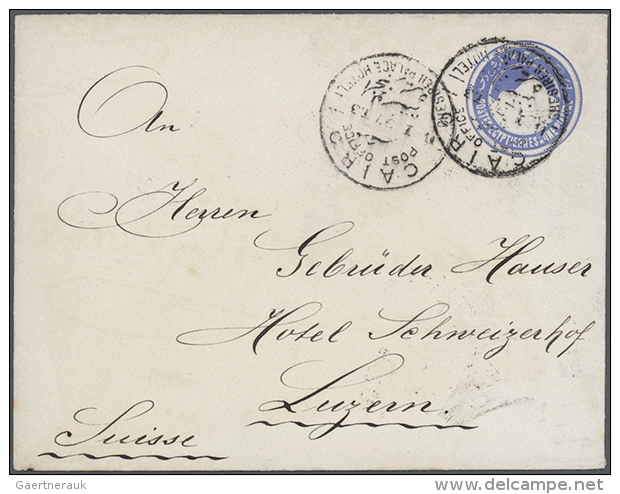 CAIRO
POST OFFICE
GHESIREH PALACE HOTEL
CAIRO
OFFICE
GHESIREH PALACE HOTEL
POSTES EGYPTIENNES
An
Herren
Gebrüder Hauser
Hotel Schweizerhof
Luzern.
Suisse
Gaertnerauk
www.delcampe.net